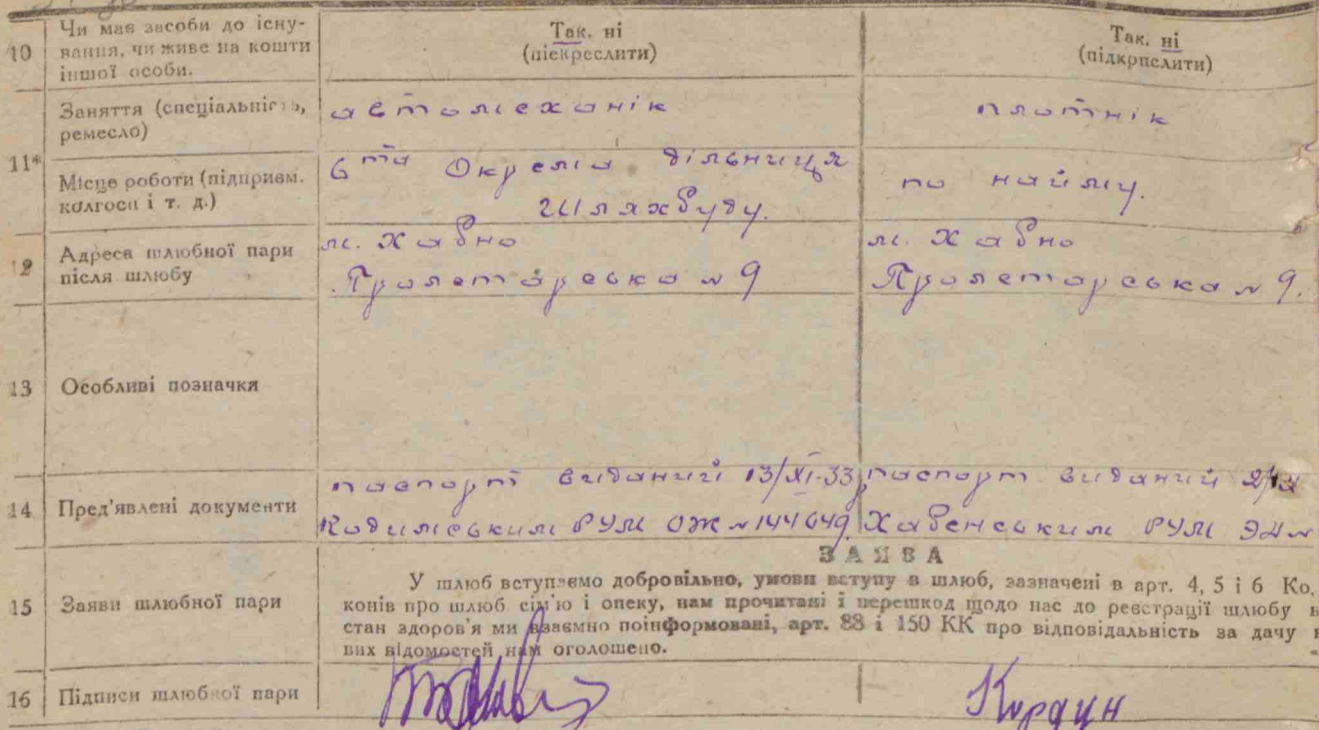 10 Чи має засоби до існу-
вання, чи живе на кошти
іншої особи.
Так, ні
(піекреслити)
Так, ні
(підкрпслити)
Заняття (спеціальність,
ремесло)
автомеханік
плотнік
11*
Місце роботи (підприєм.
колгосп і т. д.)
6та Окрема дільниця
Шляхбуду.
по найму.
12 Адреса шлюбної пари
після шлюбу
м. Хабно
Пролетарська № 9
м. Хабно
Пролетарська № 9.
13 Особливі позначки
14 Пред'явлені документи
паспорт виданий 13/XI-33
Кодимським РУМ ОЖ № 144649
паспорт виданий
Хабенським РУМ ЭД №
15 Заяви шлюбної пари
ЗАЯВА
У шлюб вступаємо добровільно, умови вступу в шлюб, зазначені в арт. 4, 5 і 6 Ко
конів про шлюб сім'ю і опеку, нам прочитані і перешкод щодо нас до реєстрації шлюбу н
стан здоров'я ми взаємно поінформовані, арт. 88 і 150 КК про відповідальність за дачу н
вих відомостей нам оголошено.
16 Підписи шлюбної пари
Кордун